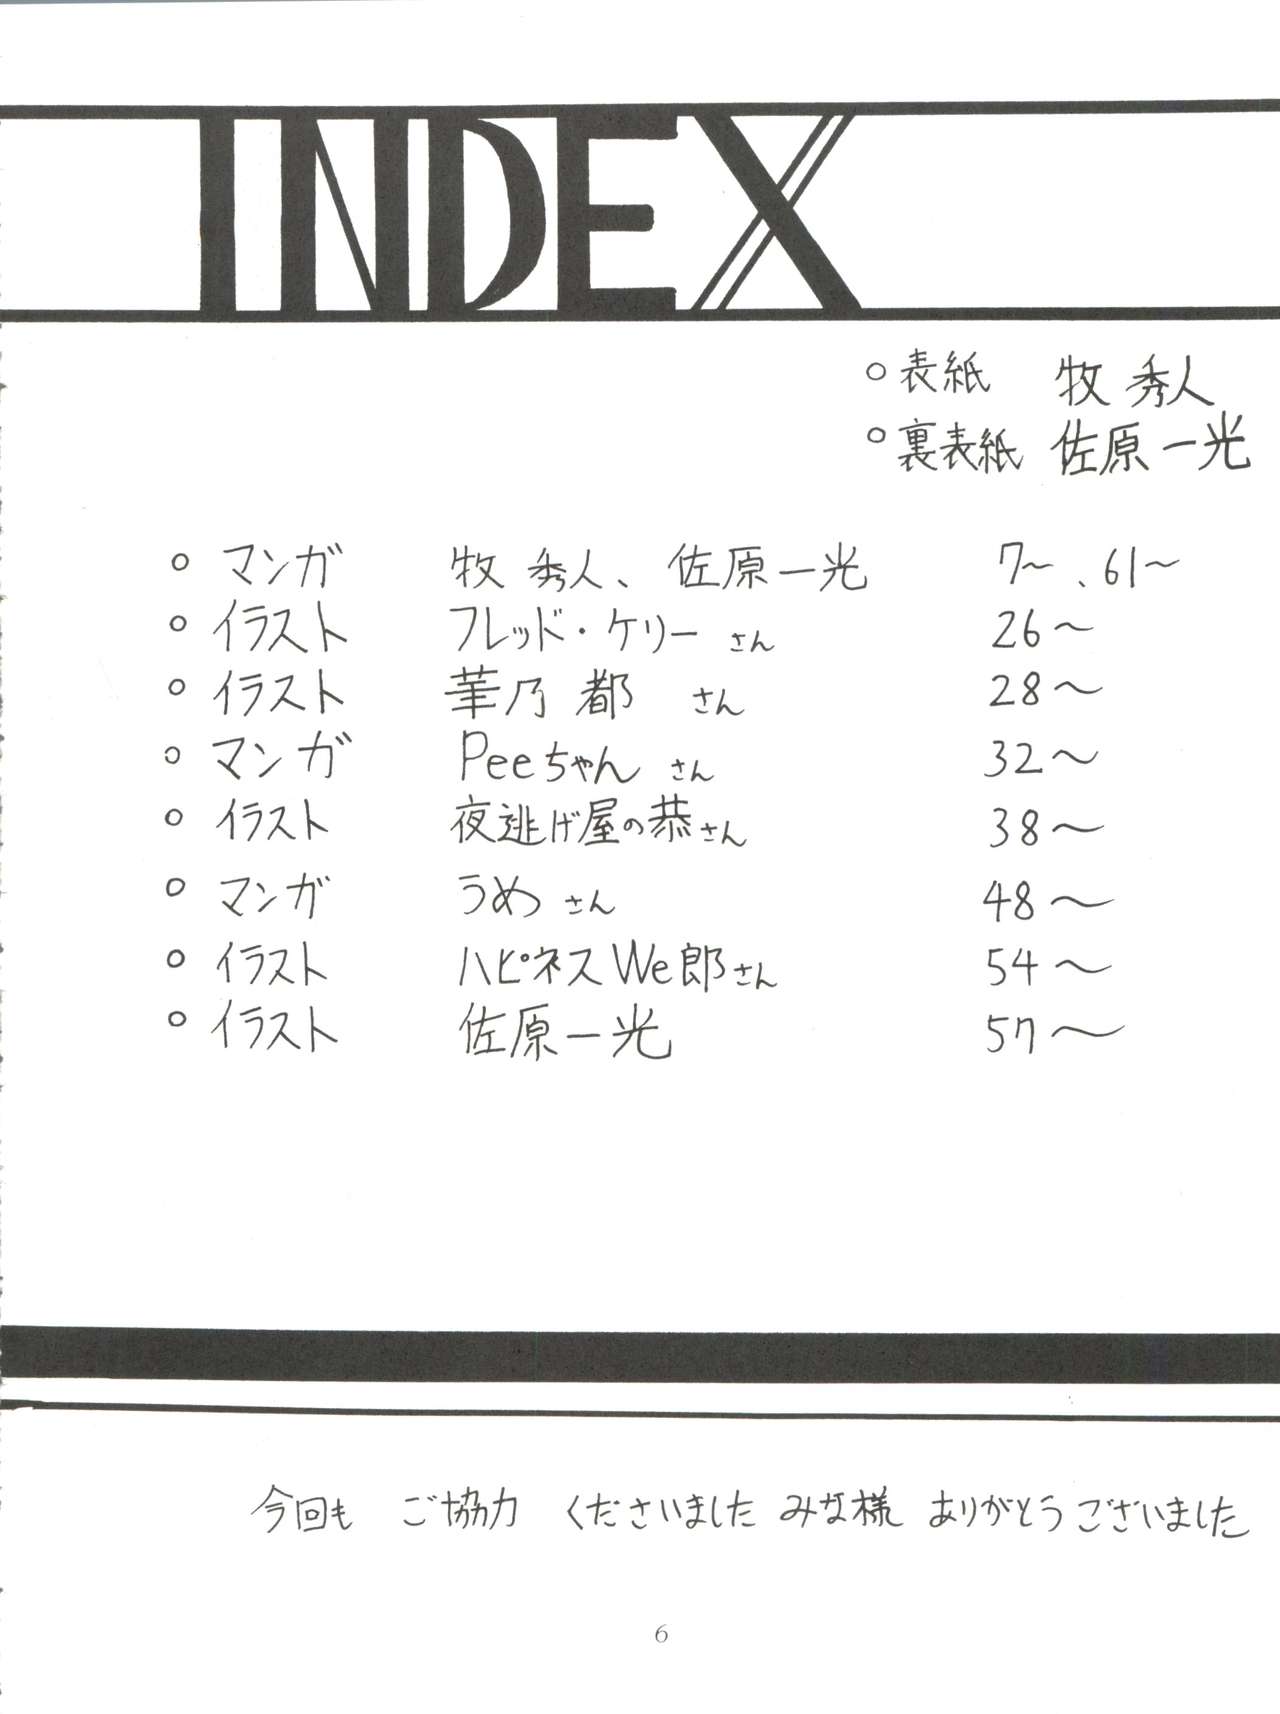 INDEX
○ 表紙 牧 秀人
○ 裏表紙 佐原一光
○ マンガ 牧 秀人、佐原一光 7～、61～
○ イラスト フレッド・ケリーさん 26～
○ イラスト 華乃 都 さん 28～
○ マンガ Peeちゃん さん 32～
○ イラスト 夜逃げ屋の恭さん 38～
○ マンガ うめさん 48～
○ イラスト ハピネスWe郎さん 54～
○ イラスト 佐原一光 57～
今回も ご協力 くださいました みな様 ありがとうございました
6